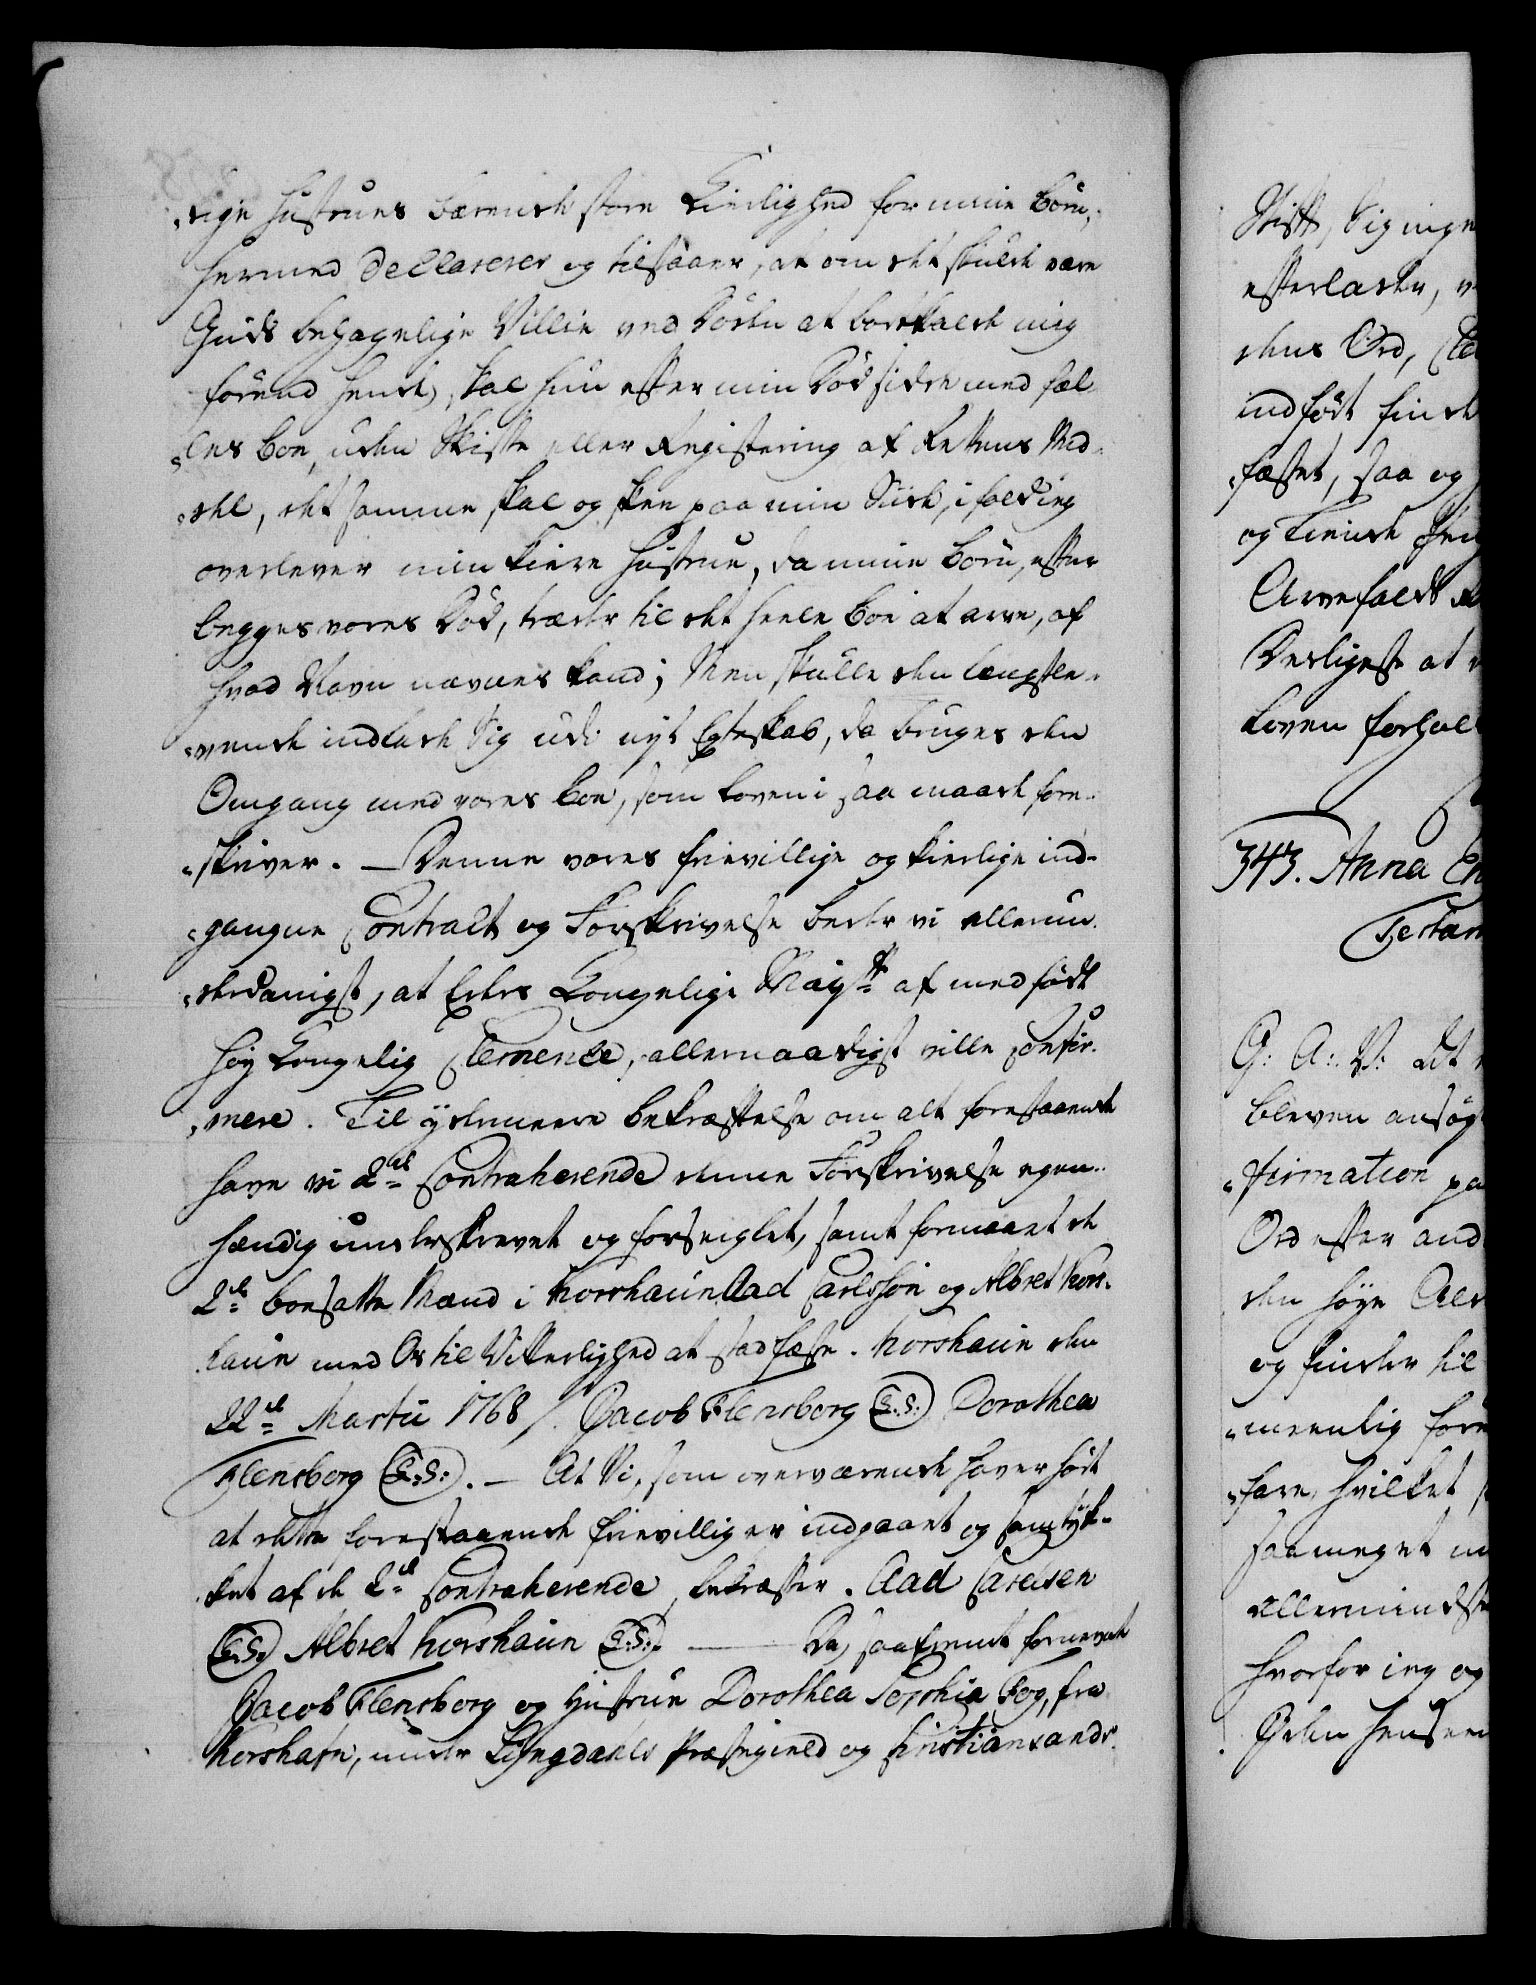 „rige Hustrues bærende store Kierlighed for mine Børn,
hermed declarerer og tilstaaer, at om det skulde være
Guds behagelige Villie ved Døden at bortkalde mig
förend hende, skal hun efter min Död sidde med fæl-
„les Boe, uden Skifte eller Registering af Rettens Mid-
„del, det samme skal og skee paa min Siide, ifald ieg
overlever min kiere Hustrue, da mine Børn, efter
begges vores Död, træder til det heele Boe at arve, af
hvad Navn nævnes kand; Men skulle den længstle-
„vende indlade Sig udi nyt Egteskab, da bruges den
Omgang med vores Boe, som Loven i saa maade fore-
„skriver. — Denne vores frievillige og kierlige ind-
„gangne Contract og Forskrivelse beder vi allerun-
„derdanigst, at Eders Kongelige Mayst: af medfödt
höy Kongelig Clemence, allernaadigst ville confir-
„mere. Til ydermeere bekræftelse om alt forestaaende
have vi 2de Contraherende denne Forskrivelse egen-
hændig underskrevet og forseiglet, samt formaaet de
2de boesatte Mænd i Korshaun Aad Carlssön og Albret Kors-
haun med Os til Vitterlighed at stadfæste. Korshaun den
22de Martii 1768 /. Jacob Flensborg (L:S:) Dorothea
Flensborg (L:S:). — At Vi, som overværende haver hört
at dette forestaaende frievillig er indgaaet og samtyk-
„ket af de 2de Contraherende, bekræfter. Aad Carelsen
(L:S:) Albret Korshaun (L:S:). — Da, saafremt fornevnte
Jacob Flensborg og Hustrue Dorothea Sophia Fog, fra
Korshafn, under Lyngdahls Præstegield og Christiansands
Stift, Sig ingen
efterlader, 
dens Ord,
indfört finde
„fæstet, saa og
og kiende
Arvefald
Desligeste at
Loven forhol
343. Anna
Testam
G: A: V: At
bleven ansög
„firmation pa
Ord efter and
den höye
og finder til
„meenlig
„fare, hvilket
saameget
allermindste
hvorfor ieg og